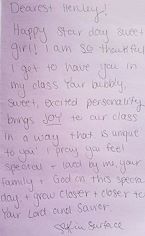 Dearest Henley!
Happy star day sweet
girl! I am so thankful
I got to have you in
my class Your bubbly,
sweet, excited personality
brings JOY to our class
in a way that is unique
to you! I pray you feel
special + loved by me, your
family, + God on this special
day + grow closer + closer to
Your Lord and Savior.
Surface